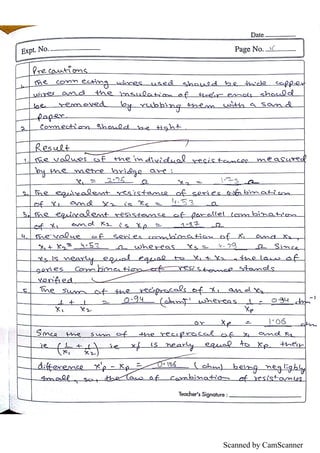 Date
Expt. No.
Page No.
Precautions
1. The connecting wires used should be thick copper
wires and the insulation of their ends should
be removed by rubbing them with a sand
paper.
2. Connection should be tight.
Result
1. The values of the individual resistances measured
by the metre bridge are :
x₁ = Ω x₂ = Ω
2. The equivalent resistance of series combination
of x₁ and x₂ is xs = 4.53 Ω
3. The equivalent resistance of parallel combination
of x₁ and x₂ is xp = Ω
4. The value of series combination of x₁ and x₂
x₁+x₂ = 4.53 Ω whereas xs = Ω Since
xs is nearly equal equal to x₁ + x₂, the law of
series combination of resistance stands
verified
5. The sum of the reciprocals of x₁ and x₂
1/x₁ + 1/x₂ = 0.94 (ohm)⁻¹ whereas 1/xp = 0.94 ohm⁻¹
or xp = 1.05 ohm
Since the sum of the reciprocal of x₁ and x₂
ie (1/x₁ + 1/x₂) ie is nearly equal to xp. their
difference x'p - xp = (ohm) being negligibly
small, so, the law of combination of resistances
Teacher's Signature :
Scanned by CamScanner